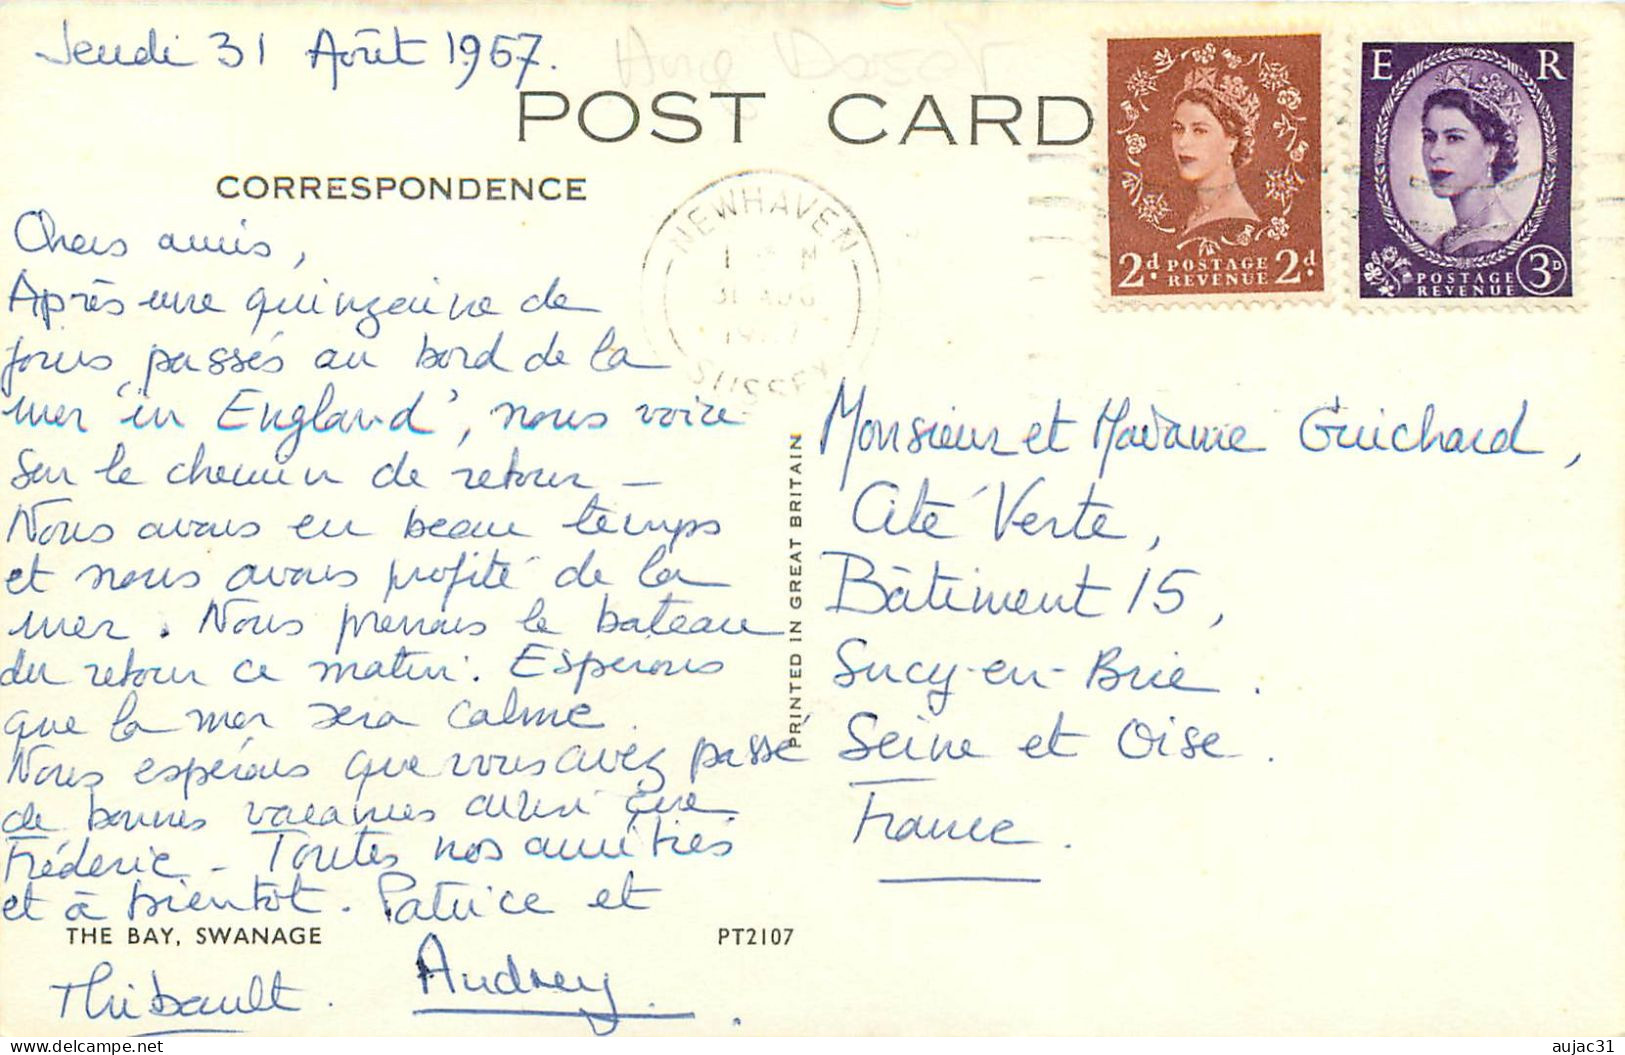 Jeudi 31 Août 1967.
POST CARD
CORRESPONDENCE
Chers amis,
Après une quinzaine de
jours passés au bord de la
mer 'in England', nous voici
sur le chemin de retour –
Nous avons eu beau temps
et nous avons profité de la
mer. Nous prenons le bateau
du retour ce matin. Espérons
que la mer sera calme.
Nous espérons que vous avez passé
de bonnes vacances ainsi que
Frédéric – Toutes nos amitiés
et à bientôt. Patrice et
THE BAY, SWANAGE
PT2107
Thibault. Audrey.
PRINTED IN GREAT BRITAIN
NEWHAVEN
31 AUG
SUSSEX
2d. POSTAGE REVENUE 2d.
E R
POSTAGE REVENUE 3D
Monsieur et Madame Guichard,
Cité Verte,
Bâtiment 15,
Sucy-en-Brie.
Seine et Oise.
France.
delcampe.net
aujac31